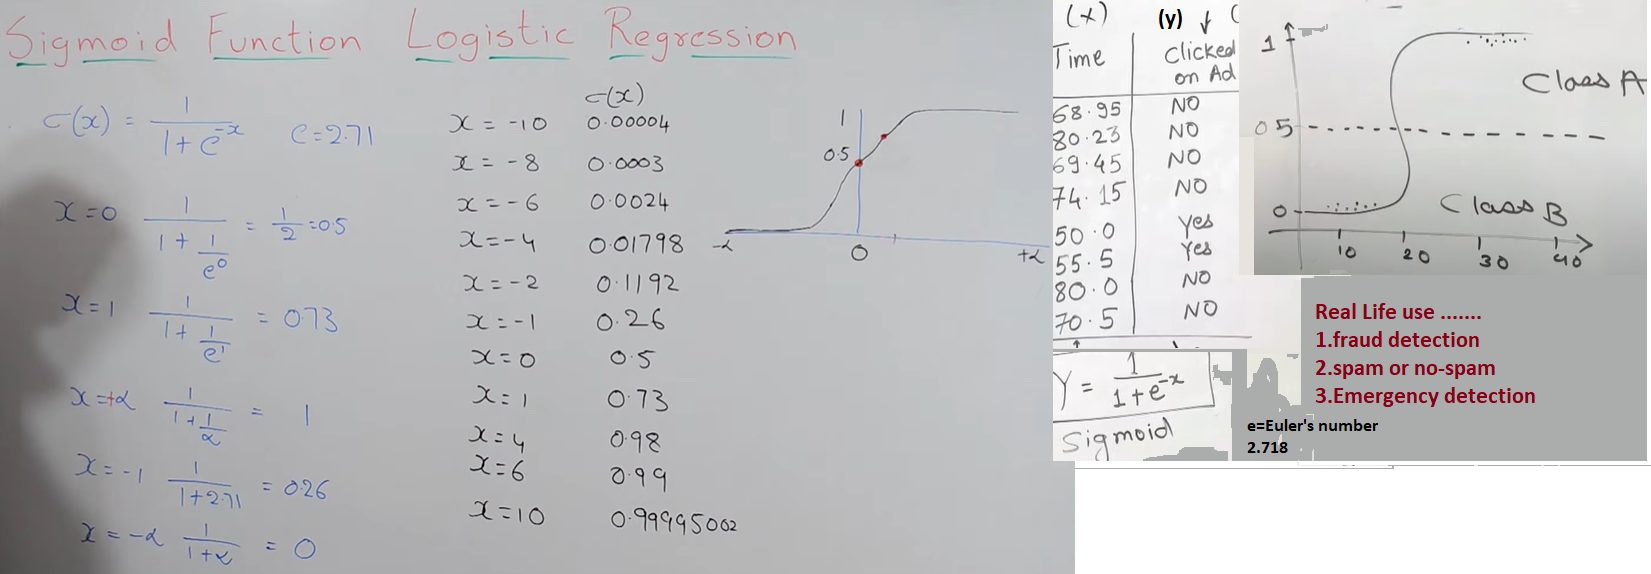 Sigmoid Function Logistic Regression
σ(x) = 1 / 1 + e^-x    e = 2.71
x = 0   1 / 1 + 1/e^0 = 1/2 = 0.5
x = 1   1 / 1 + 1/e^1 = 0.73
x = +α   1 / 1 + 1/α = 1
x = -1   1 / 1 + 2.71 = 0.26
x = -α   1 / 1 + α = 0
σ(x)
x = -10   0.00004
x = -8   0.0003
x = -6   0.0024
x = -4   0.01798
x = -2   0.1192
x = -1   0.26
x = 0   0.5
x = 1   0.73
x = 4   0.98
x = 6   0.99
x = 10   0.99995002
1
0.5
-α   0   +α
(x)   (y) ↓ (
Time   Clicked
on Ad
68.95   NO
80.23   NO
69.45   NO
74.15   NO
50.0   Yes
55.5   Yes
80.0   NO
70.5   NO
Y = 1 / 1 + e^-x
Sigmoid
1
Class A
0 5
0   Class B
10   20   30   40
Real Life use .......
1.fraud detection
2.spam or no-spam
3.Emergency detection
e=Euler's number
2.718